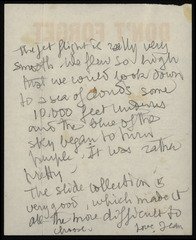 DON'T FORGET
the jet flight is really very
smooth. We flew so high
that we could look down
to a sea of clouds some
10.000 feet under us
and the blue of the
sky began to turn
purple. It was rather
pretty.
The slide collection is
very good, which makes it
all the more difficult to
choose. Love, Jean